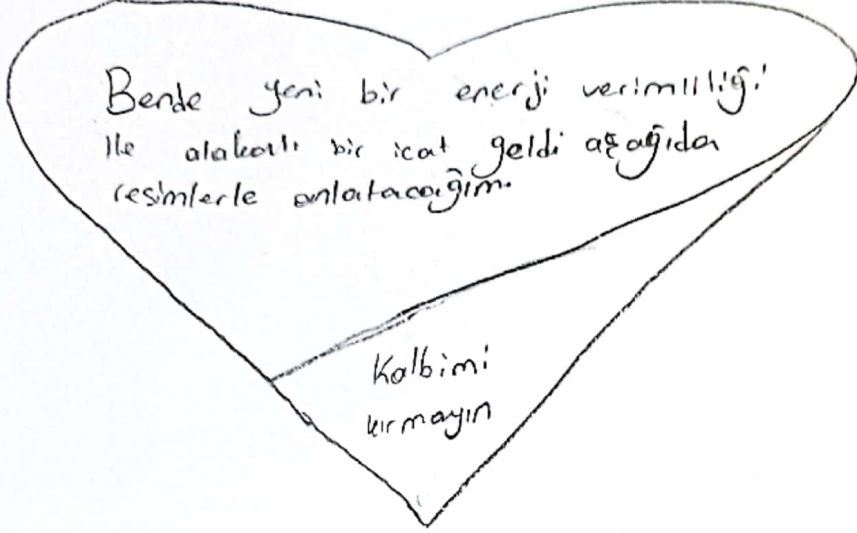 Bende yeni bir enerji verimliliği
ile alakalı bir icat geldi aşağıda
resimlerle anlatacağım.
Kalbimi
kırmayın